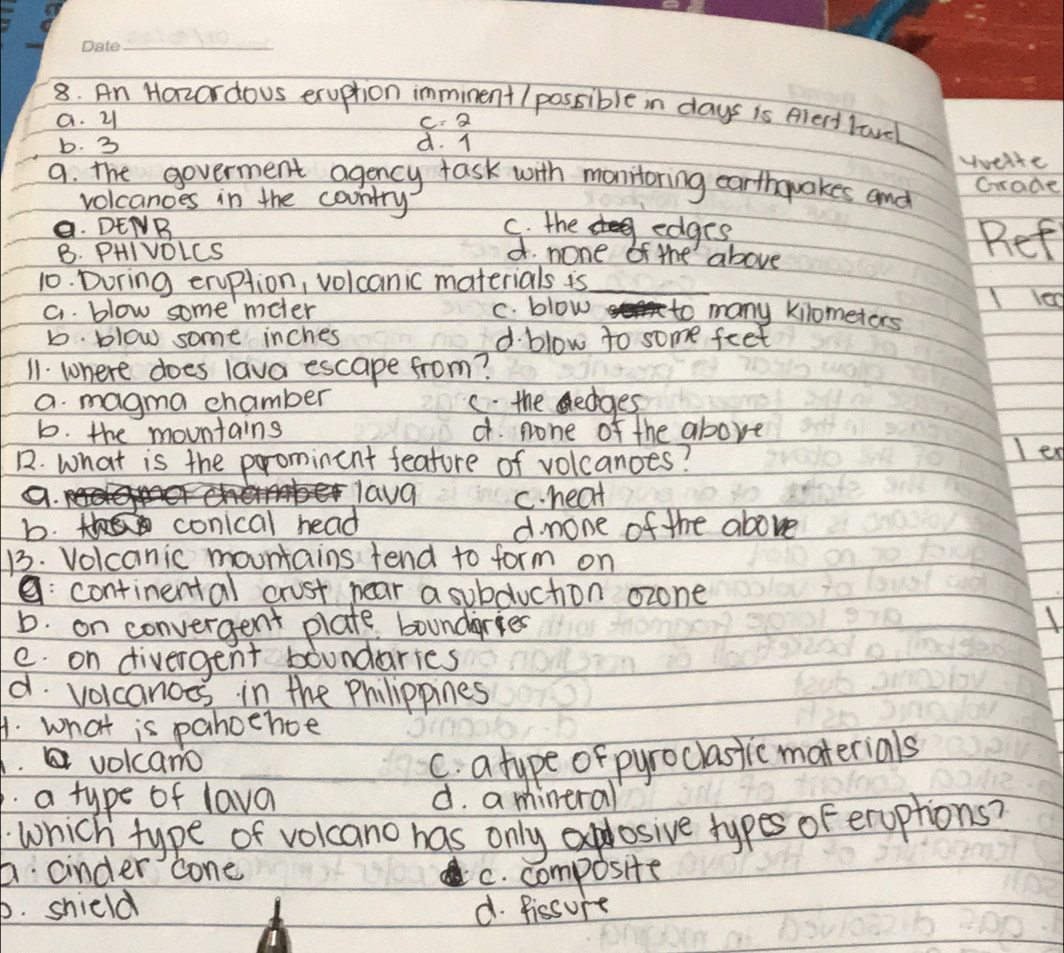 Date
8. An Hazardous eruption imminent/possible in days is Alert level
a. 4 c. 2
b. 3 d. 1
9. the goverment agency task with monitoring earthquakes and
volcanoes in the country
a. DENR c. the edges
B. PHIVOLCS d. none of the above
10. During eruption, volcanic materials is
a. blow some meter c. blow to many kilometers
b. blow some inches d. blow to some feet
11. where does lava escape from?
a. magma chamber c. the edges
b. the mountains d. none of the above
12. what is the prominent feature of volcanoes?
a. lava c. heat
b. conical head d. none of the above
13. Volcanic mountains tend to form on
a: continental crust near a subduction ozone
b. on convergent plate boundaries
c. on divergent boundaries
d. volcanoes in the Philippines
4. what is pahoehoe
a volcano c. a type of pyroclastic materials
. a type of lava d. a mineral
. which type of volcano has only explosive types of eruptions?
a. cinder cone c. composite
b. shield d. fissure
Yvette
Grade
Ref
1
1